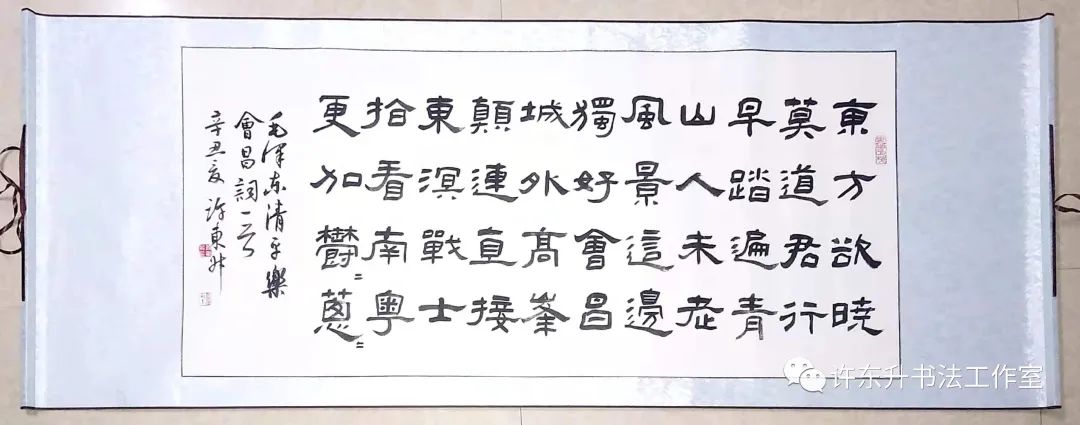 東方欲曉
莫道君行
早踏遍青
山人未老
風景這邊
獨好會昌
城外高峯
顛連直接
東溟戰士
指看南粵
更加欝〻蔥〻
毛澤东清平樂
會昌詞一首
辛丑夏 许東升
许东升书法工作室